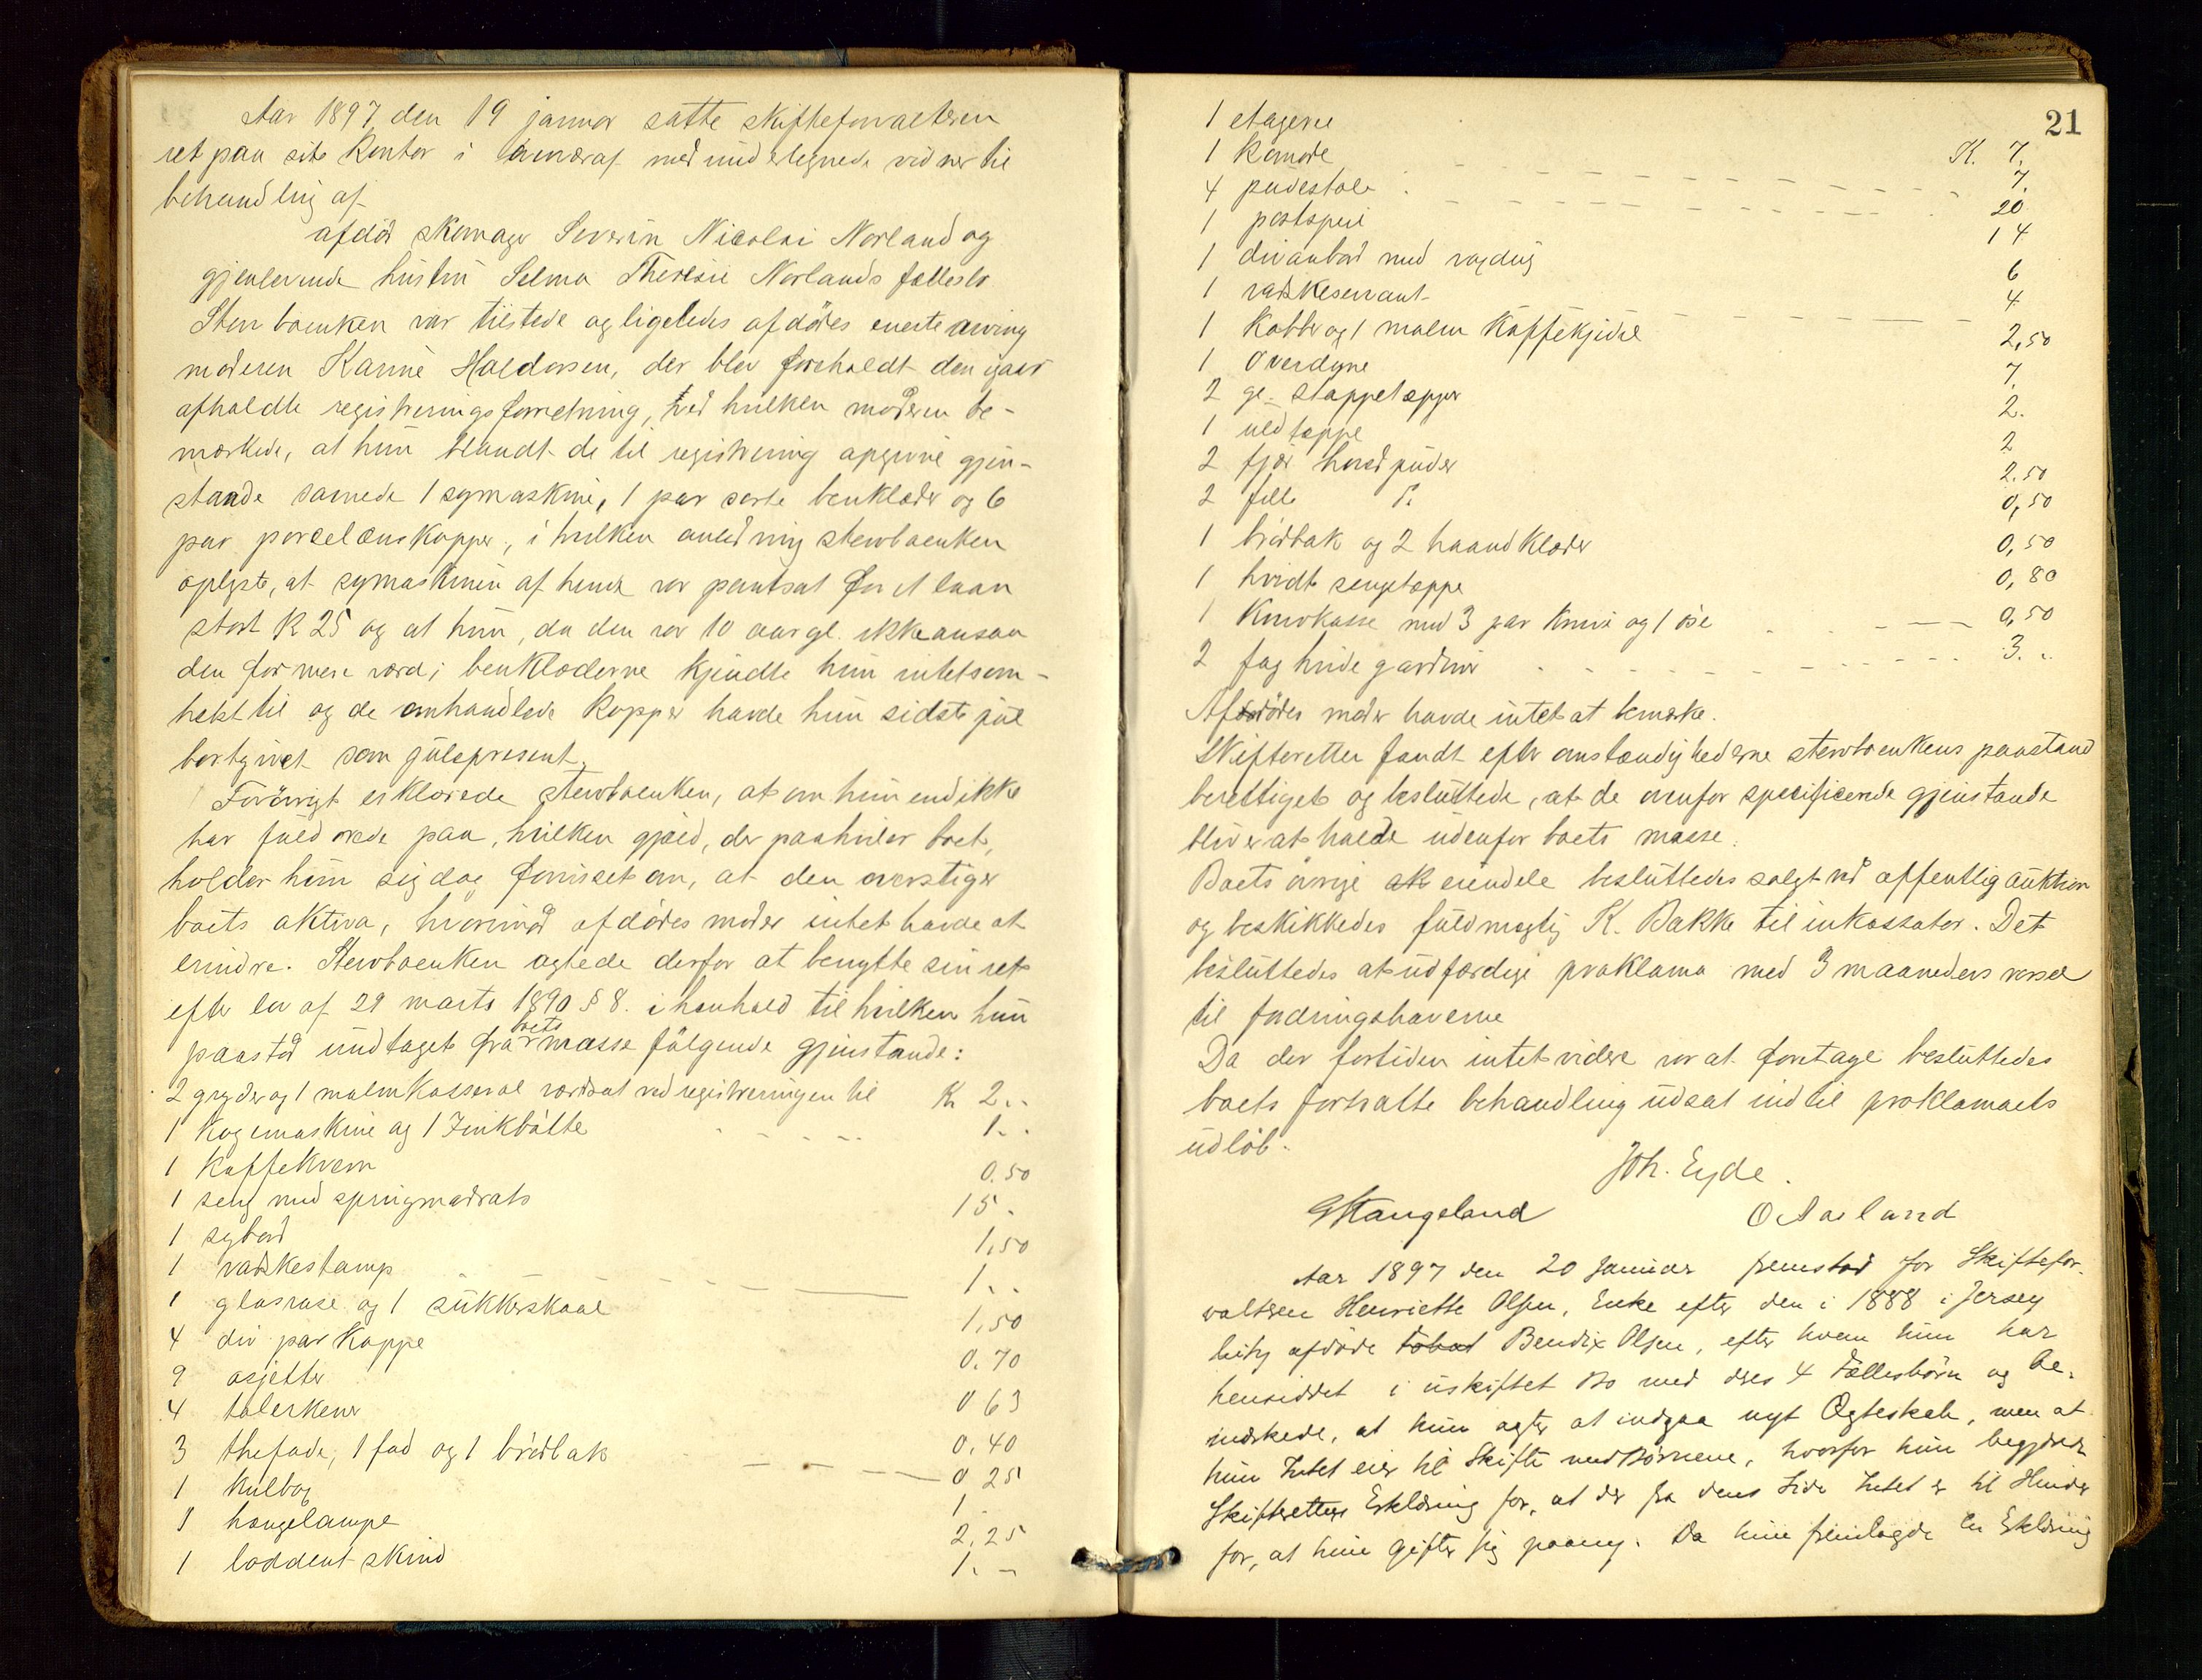 Aar 1897 den 19 januar satte skifteforvalteren
ret paa sit kontor i med undertegnede vidner til
behandling af
afdød skomager Severin Nicolai Norland og
gjenlevende hustru Selma Theresie Norlands fællesbo
Stervboenken var tilstede og ligeledes afdødes eneste arving
moderen Karine Haldorsen, der blev foreholdt den igaar
afholdte registreringsforretning, ved hvilken moderen be-
mærkede, at hun blandt de til registrering opgivne gjen-
stande savnede 1 symaskine, 1 par sorte benklæder og 6
par porcelænskopper, i hvilken anledning stervboenken
oplyste, at symaskinen af hende var pantsat for et laan
stort K 25 og at hun, da den var 10 aar gl. ikke ansaa
den for mere værd; benklæderne kjendte hun intetsom-
helst til og de omhandlede kopper havde hun sidste jul
bortgivet som julepresent.
Forövrigt erklærede stervboenken, at om hun end ikke
har fuld rede paa, hvilken gjæld, der paahviler boet,
holder hun sig dog forvisset om, at den overstiger
boets aktiva, hvorimod afdødes moder intet havde at
erindre. Stervboenken agtede derfor at benytte sin ret
efter lov af 29 marts 1890 § 8. i henhold til hvilken hun
paastod undtaget fra boets masse følgende gjenstande:
2 gryder og 1 malmkasserol værdsat ved registreringen til K 2. -
1 kogemaskine og 1 Zinkbøtte - - - - 1. -
1 kaffekvern 0.50
1 seng med springmadrats 15. -
1 sybord 1,50
1 vaskestamp 1. -
1 glasvase og 1 sukkerskaal 1,50
4 div par kopper 0.70
9 asjetter 0 63
4 talerkener 0.40
3 thefade, 1 fad og 1 brødbak 0 25
1 kulbox 1 -
1 hængelampe 2,25
1 loddent skind 1. -
21
1 etagere K. 7.
1 komode 7.
4 pudestole 20
1 postspeil 14
1 divanbord med voxdug 6
1 vaskeservant 4
1 kobber og 1 malm kaffekjedel 2,50
1 overdyne 7.
2 gl. stoppetæpper 2.
1 uldtæppe 2
2 fjær hovedpuder 2.50
2 filt D. 0,50
1 brødbak og 2 haandklæder 0,50
1 hvidt sengetæppe 0,80
1 knivkasse med 3 par knive og 1 øse 0,50
2 fag hvide gardiner 3. -
Afdødes moder havde intet at bemærke.
Skifteretten fandt efter omstændighederne stervboenkens paastand
berettiget og besluttede, at de ovenfor specificerede gjenstande
bliver at holde udenfor boets masse.
Boets øvrige eiendele besluttedes solgt ved offentlig auktion
og beskikkedes fuldmægtig K. Bakke til inkassator. Det
besluttedes at udfærdige proklama med 3 maaneders varsel
til fordringshaverne
Da der fortiden intet videre var at foretage besluttedes
boets fortsatte behandling udsat indtil proklamaets
udløb.
Joh. Eyde.
G Stangeland O Aarland
Aar 1897 den 20 Januar fremstod for Skiftefor-
valteren Henriette Olsen, Enke efter den i 1888 i Jersey
City afdøde Bendix Olsen, efter hvem hun har
hensiddet i uskiftet Bo med deres 4 Fællesbørn og be-
mærkede, at hun agter at indgaa nyt Ægteskab, men at
hun Intet eier til Skifte med Børnene, hvorfor hun begjærede
Skifterettens Erklæring for, at der fra dens Side Intet er til Hinder
for, at hun gifter sig paany. Da hun fremlagde en Erklæring